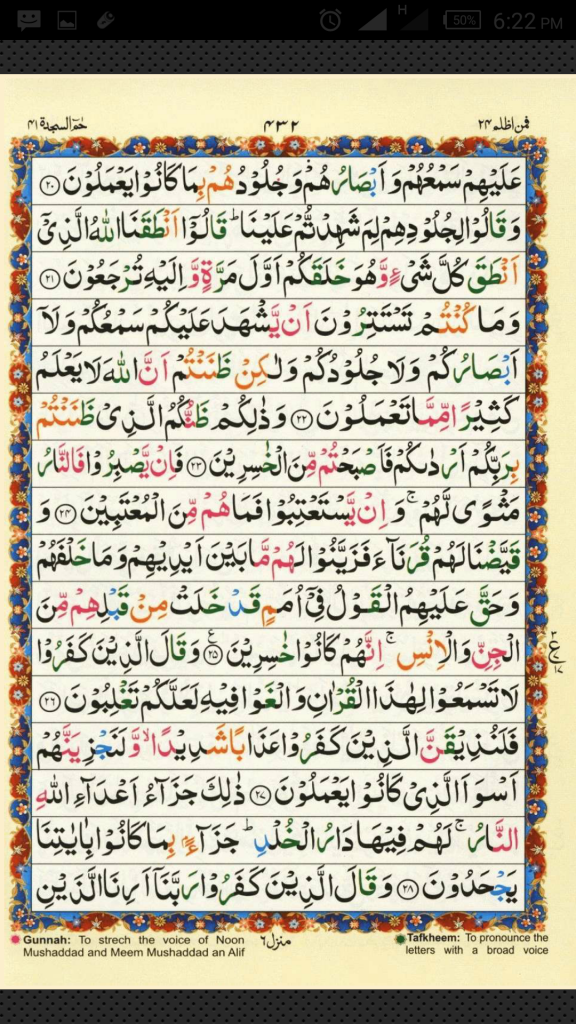 H 50% 6:22 PM
فمن اظلم ٢٤ ٤٣٢ حٰمٓ السجدة ٤١
عَلَيْهِمْ سَمْعُهُمْ وَ اَبْصَارُهُمْ وَ جُلُوْدُهُمْ بِمَا كَانُوْا يَعْمَلُوْنَ ﴿۲۰﴾
وَ قَالُوْا لِجُلُوْدِهِمْ لِمَ شَهِدْتُّمْ عَلَيْنَا ؕ قَالُوْۤا اَنْطَقَنَا اللّٰهُ الَّذِیْۤ
اَنْطَقَ كُلَّ شَیْءٍ وَّ هُوَ خَلَقَكُمْ اَوَّلَ مَرَّةٍ وَّ اِلَيْهِ تُرْجَعُوْنَ ﴿۲۱﴾
وَ مَا كُنْتُمْ تَسْتَتِرُوْنَ اَنْ يَّشْهَدَ عَلَيْكُمْ سَمْعُكُمْ وَ لَاۤ
اَبْصَارُكُمْ وَ لَا جُلُوْدُكُمْ وَ لٰكِنْ ظَنَنْتُمْ اَنَّ اللّٰهَ لَا يَعْلَمُ
كَثِيْرًا مِّمَّا تَعْمَلُوْنَ ﴿۲۲﴾ وَ ذٰلِكُمْ ظَنُّكُمُ الَّذِیْ ظَنَنْتُمْ
بِرَبِّكُمْ اَرْدٰىكُمْ فَاَصْبَحْتُمْ مِّنَ الْخٰسِرِيْنَ ﴿۲۳﴾ فَاِنْ يَّصْبِرُوْا فَالنَّارُ
مَثْوًی لَّهُمْ ۚ وَ اِنْ يَّسْتَعْتِبُوْا فَمَا هُمْ مِّنَ الْمُعْتَبِيْنَ ﴿۲۴﴾ وَ
قَيَّضْنَا لَهُمْ قُرَنَآءَ فَزَيَّنُوْا لَهُمْ مَّا بَيْنَ اَيْدِيْهِمْ وَ مَا خَلْفَهُمْ
وَ حَقَّ عَلَيْهِمُ الْقَوْلُ فِیْۤ اُمَمٍ قَدْ خَلَتْ مِنْ قَبْلِهِمْ مِّنَ
الْجِنِّ وَ الْاِنْسِ ۚ اِنَّهُمْ كَانُوْا خٰسِرِيْنَ ﴿۲۵﴾ وَ قَالَ الَّذِيْنَ كَفَرُوْا
٣ ع ١٧
لَا تَسْمَعُوْا لِهٰذَا الْقُرْاٰنِ وَ الْغَوْا فِيْهِ لَعَلَّكُمْ تَغْلِبُوْنَ ﴿۲۶﴾
فَلَنُذِيْقَنَّ الَّذِيْنَ كَفَرُوْا عَذَابًا شَدِيْدًا ۙ وَّ لَنَجْزِيَنَّهُمْ
اَسْوَاَ الَّذِیْ كَانُوْا يَعْمَلُوْنَ ﴿۲۷﴾ ذٰلِكَ جَزَآءُ اَعْدَآءِ اللّٰهِ
النَّارُ ۚ لَهُمْ فِيْهَا دَارُ الْخُلْدِ ؕ جَزَآءًۢ بِمَا كَانُوْا بِاٰيٰتِنَا
يَجْحَدُوْنَ ﴿۲۸﴾ وَ قَالَ الَّذِيْنَ كَفَرُوْا رَبَّنَاۤ اَرِنَا الَّذَيْنِ
Gunnah: To strech the voice of Noon
Mushaddad and Meem Mushaddad an Alif
منزل ٦
Tafkheem: To pronounce the
letters with a broad voice